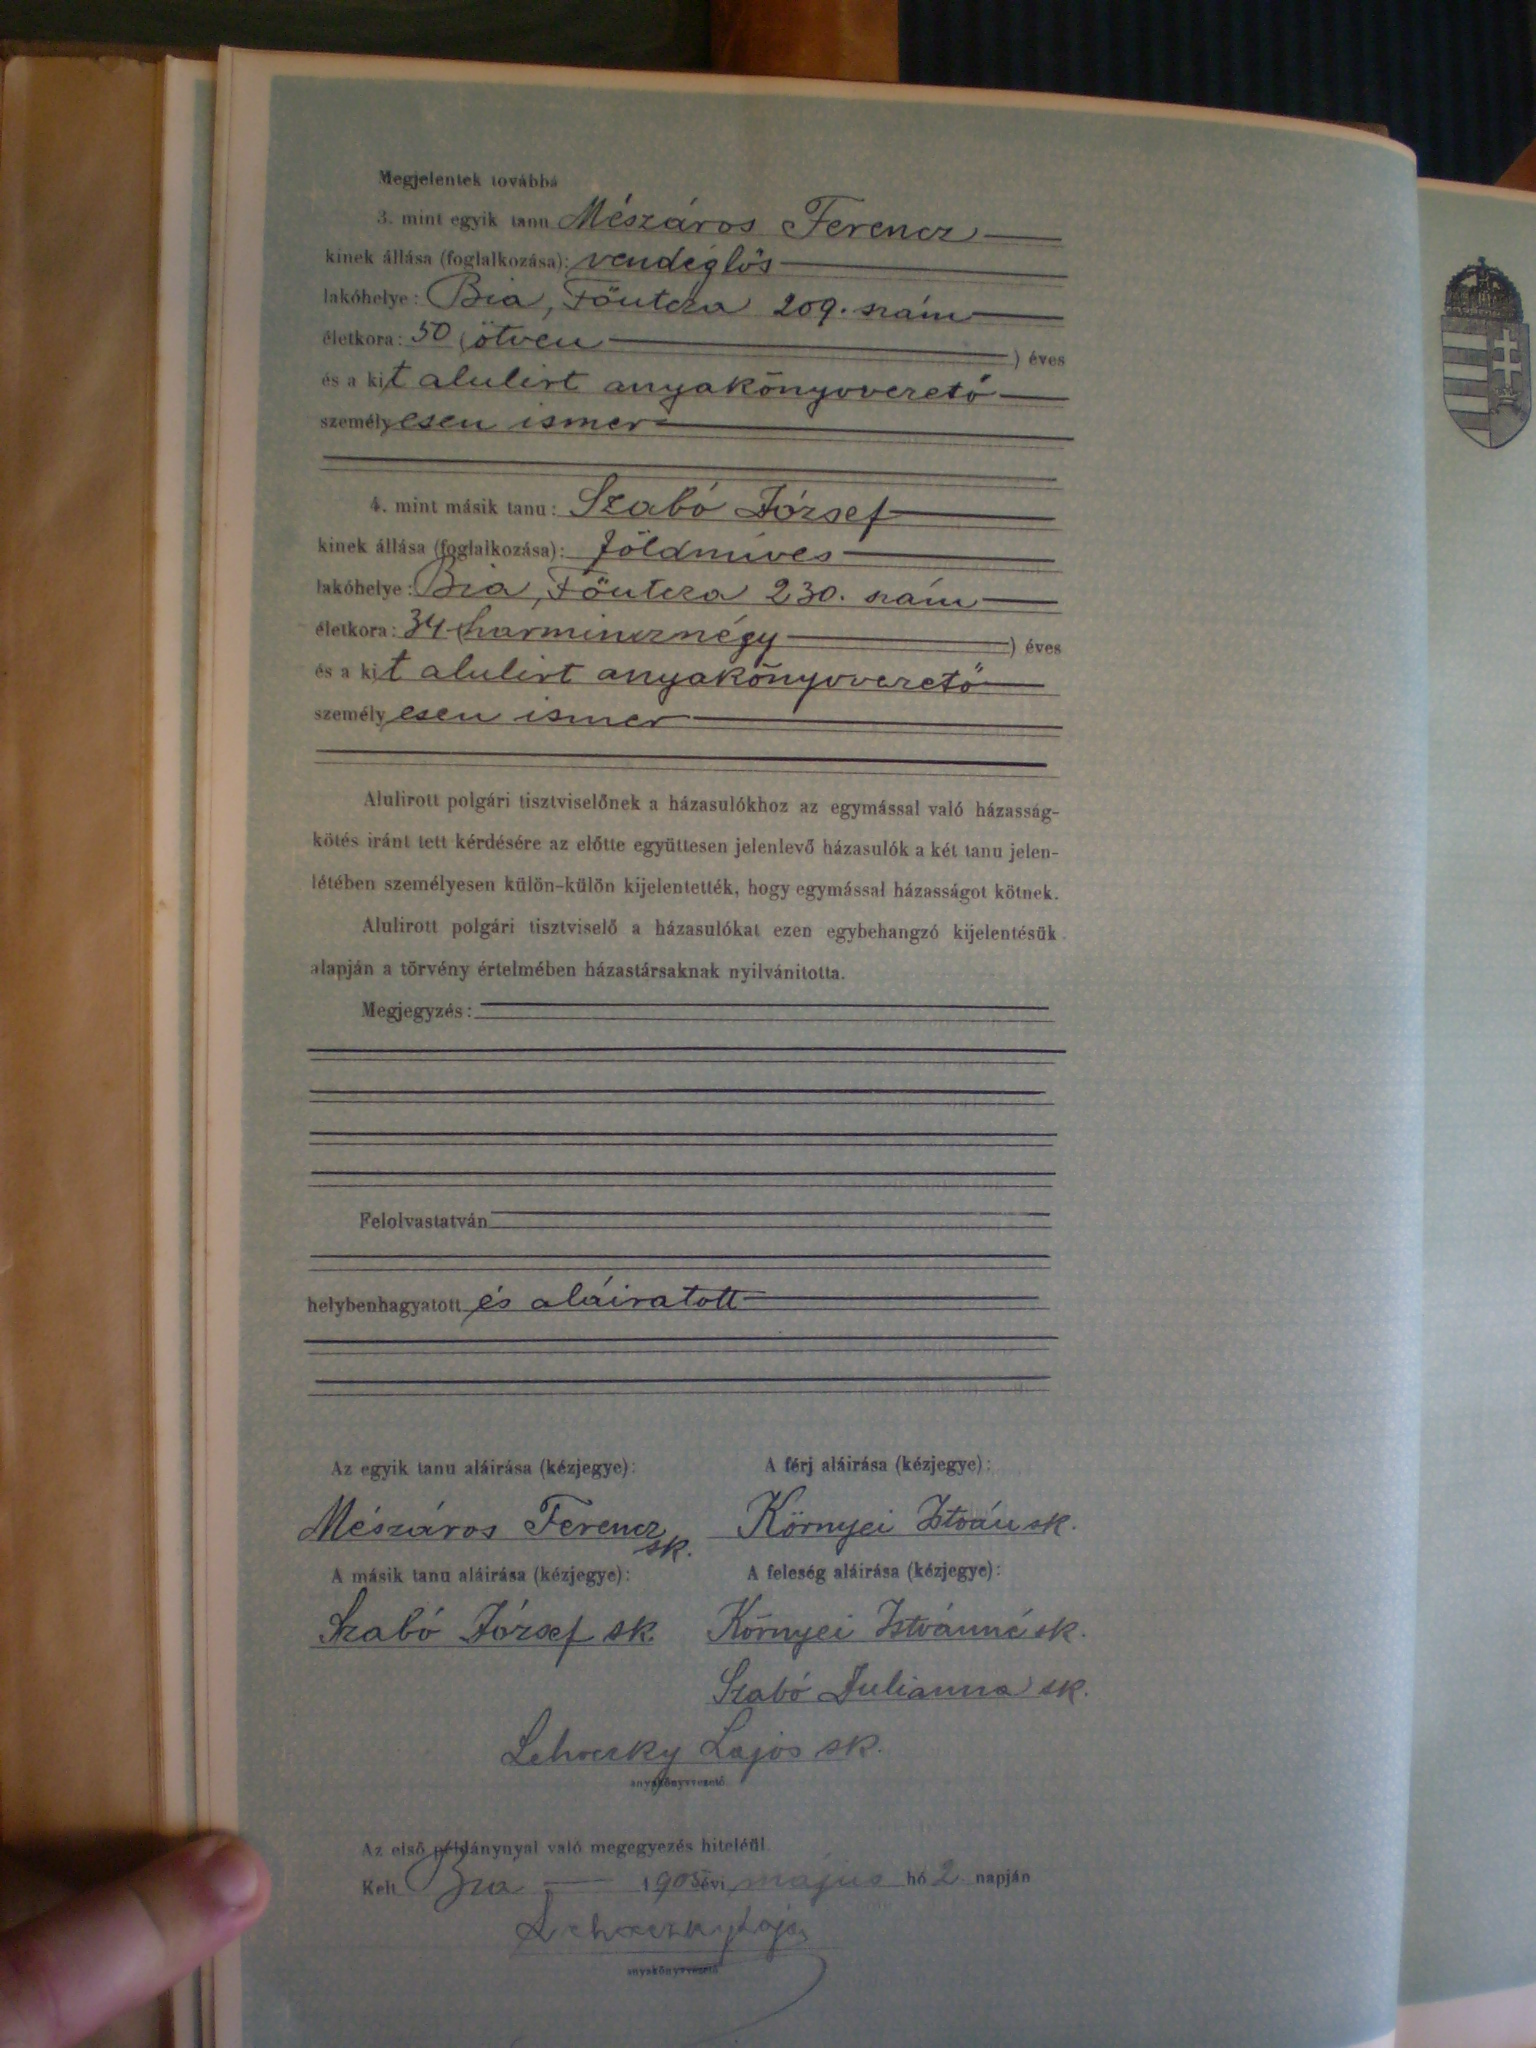 Megjelentek továbbá
3. mint egyik tanu Mészáros Ferencz
kinek állása (foglalkozása): vendéglős
lakóhelye: Bia, Főutcza 209. szám
életkora: 50 (ötven ) éves
és a kit alulirt anyakönyvvezető
személyesen ismer
4. mint másik tanu: Szabó József
kinek állása (foglalkozása): földmives
lakóhelye: Bia, Főutcza 230. szám
életkora: 34 (harmincznégy ) éves
és a kit alulirt anyakönyvvezető
személyesen ismer
Alulirott polgári tisztviselőnek a házasulókhoz az egymással való házasság-
kötés iránt tett kérdésére az előtte együttesen jelenlevő házasulók a két tanu jelen-
létében személyesen külön-külön kijelentették, hogy egymással házasságot kötnek.
Alulirott polgári tisztviselő a házasulókat ezen egybehangzó kijelentésük
alapján a törvény értelmében házastársaknak nyilvánitotta.
Megjegyzés:
Felolvastatván
helybenhagyatott és aláiratott
Az egyik tanu aláirása (kézjegye): A férj aláirása (kézjegye):
Mészáros Ferencz sk. Környei István sk.
A másik tanu aláirása (kézjegye): A feleség aláirása (kézjegye):
Szabó József sk. Környei Istvánné sk.
Szabó Julianna sk.
Lehoczky Lajos sk.
anyakönyvvezető
Az első példánynyal való megegyezés hiteléül.
Kelt Bia 1905 évi május hó 2 napján
Lehoczky Lajos
anyakönyvvezető